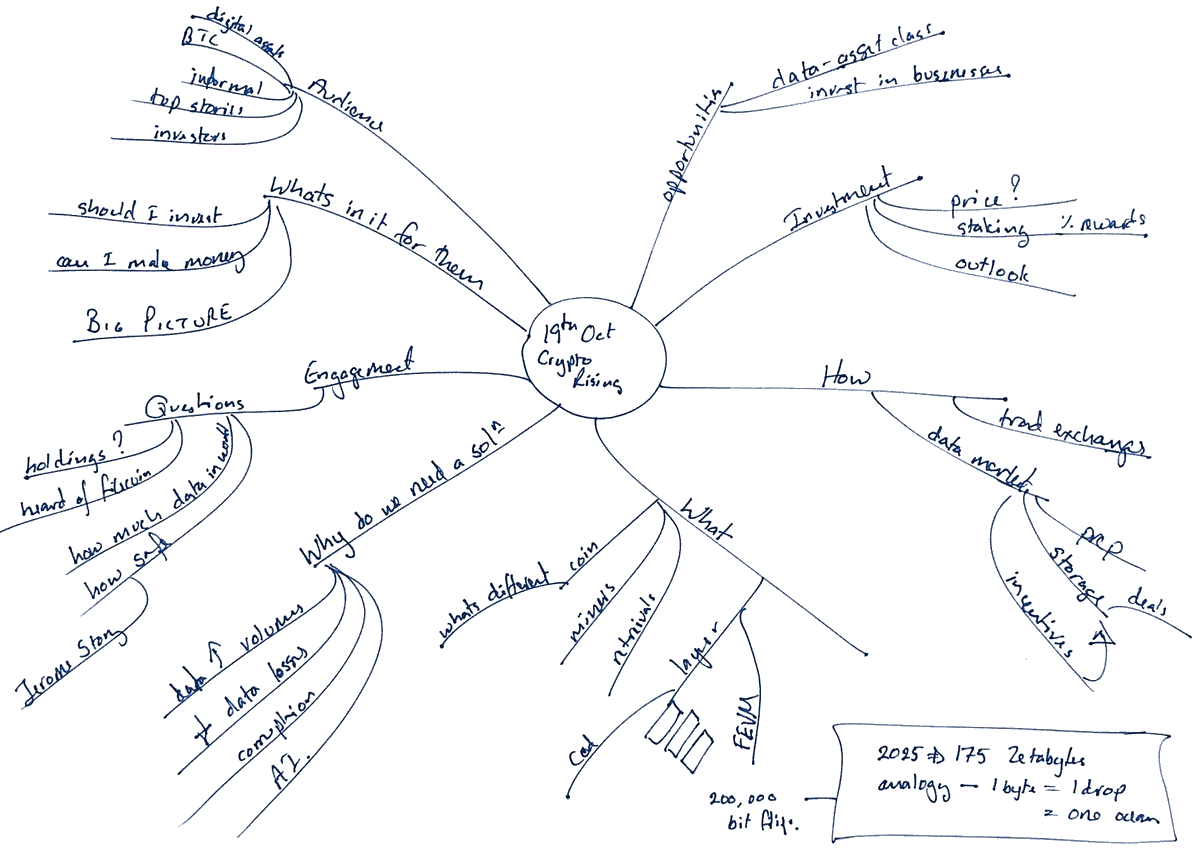 19th Oct
Crypto
Rising
Audience
digital assets
BTC
informal
top stories
investors
Whats in it for them
should I invest
can I make money
BIG PICTURE
Engagement
Questions
holdings?
heard of filecoin
how much data in world
how safe
Jerome Story
Why do we need a sol'n
data ↑ volumes
data losses
corruption
AI.
What
whats different
coin
miners
retrievals
layer
FEVM
How
trad exchanges
data market
prep
storage
deals
incentives
Investment
price?
staking % rewards
outlook
opportunities
data-asset class
invest in businesses
200,000
bit flips.
2025 → 175 Zetabytes
analogy — 1 byte = 1 drop
= one ocean